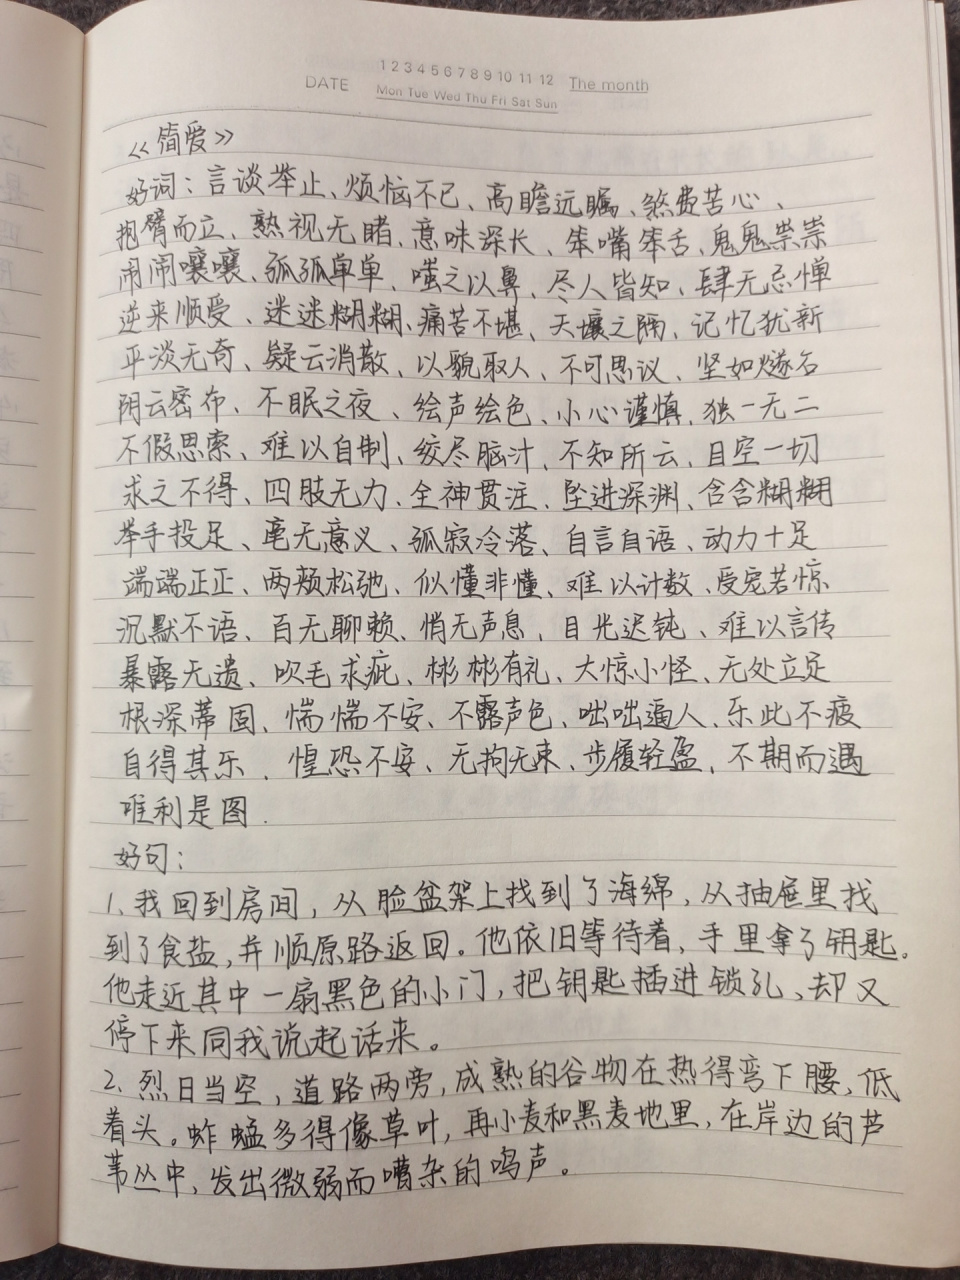 1 2 3 4 5 6 7 8 9 10 11 12
DATE
The month
Mon Tue Wed Thu Fri Sat Sun
《简爱》
好词：言谈举止、烦恼不已、高瞻远瞩、煞费苦心、
抱臂而立、熟视无睹、意味深长、笨嘴笨舌、鬼鬼祟祟
闹闹嚷嚷、孤孤单单、嗤之以鼻、尽人皆知、肆无忌惮
逆来顺受、迷迷糊糊、痛苦不堪、天壤之隔、记忆犹新
平淡无奇、疑云消散、以貌取人、不可思议、坚如燧石
阴云密布、不眠之夜、绘声绘色、小心谨慎、独一无二
不假思索、难以自制、绞尽脑汁、不知所云、目空一切
求之不得、四肢无力、全神贯注、坠进深渊、含含糊糊
举手投足、毫无意义、孤寂冷落、自言自语、动力十足
端端正正、两颊松弛、似懂非懂、难以计数、受宠若惊
沉默不语、百无聊赖、悄无声息、目光迟钝、难以言传
暴露无遗、吹毛求疵、彬彬有礼、大惊小怪、无处立足
根深蒂固、惴惴不安、不露声色、咄咄逼人、乐此不疲
自得其乐、惶恐不安、无拘无束、步履轻盈、不期而遇
唯利是图.
好句：
1、我回到房间，从脸盆架上找到了海绵，从抽屉里找
到了食盐，并顺原路返回。他依旧等待着，手里拿了钥匙。
他走近其中一扇黑色的小门，把钥匙插进锁孔、却又
停下来同我说起话来。
2、烈日当空，道路两旁，成熟的谷物在热得弯下腰，低
着头。蚱蜢多得像草叶，再小麦和黑麦地里，在岸边的芦
苇丛中，发出微弱而嘈杂的鸣声。